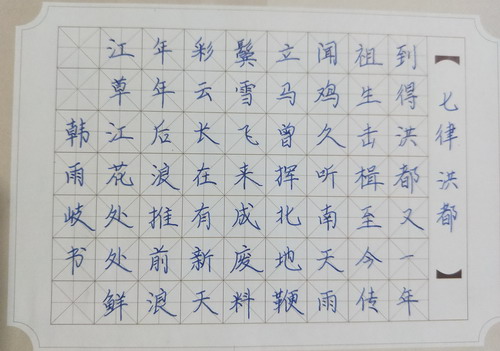 【七律 洪都】
到得洪都又一年
祖生击楫至今传
闻鸡久听南天雨
立马曾挥北地鞭
鬓雪飞来成废料
彩云长在有新天
年年后浪推前浪
江草江花处处鲜
韩雨岐书